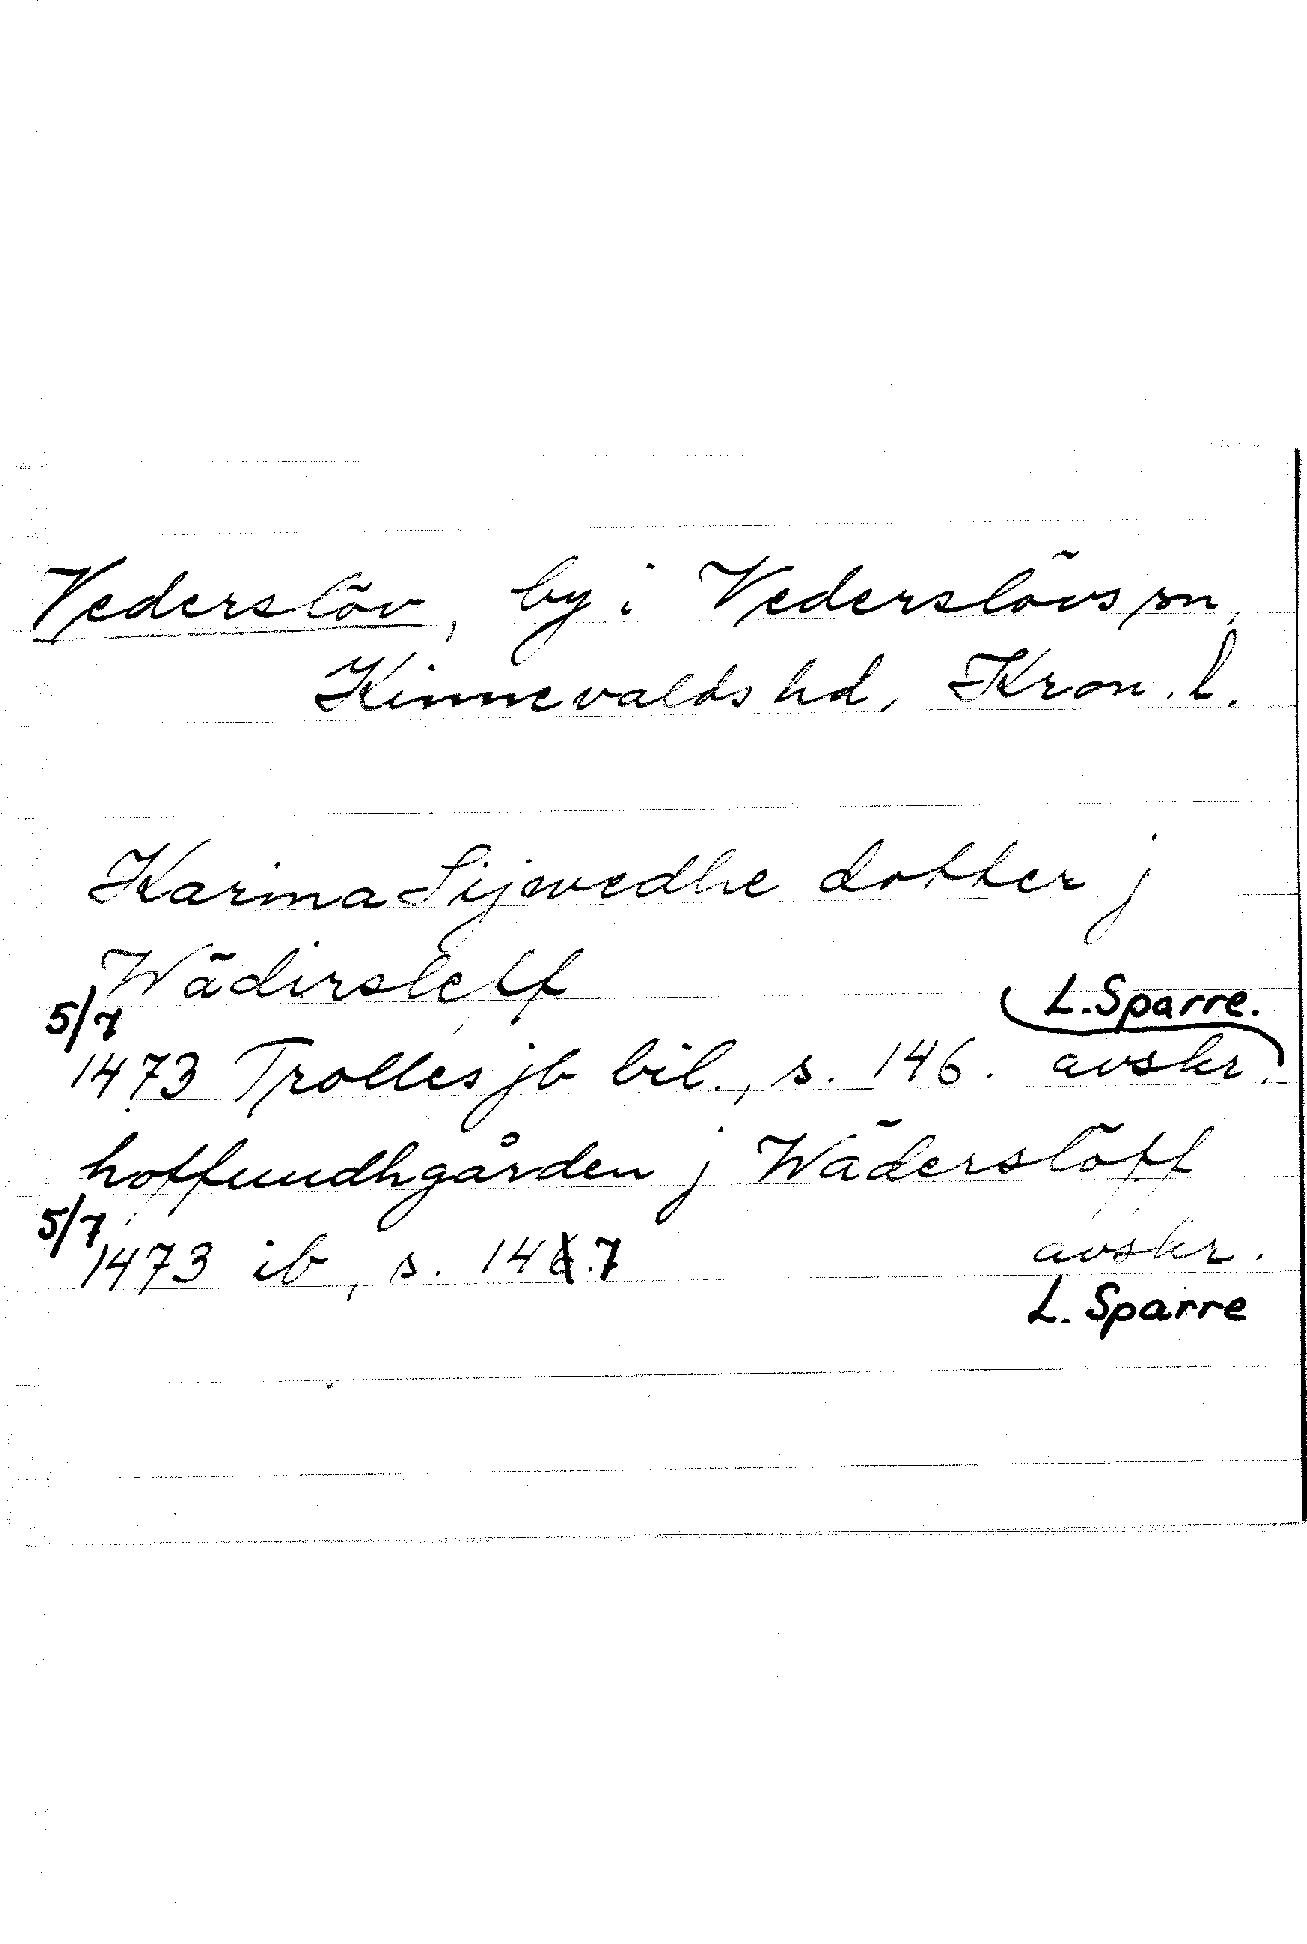 Vederslöv, by i Vederslövs sn,
Kinnevalds hd, Kron. l.
Karina Sijwedhe dotter j
Wädirsleff
L. Sparre.
5/7 1473 Trolles jb bil., s. 146. avskr.
hoffuudhgården j Wäderslöff
5/7 1473 ib, s. 147 avskr.
L. Sparre